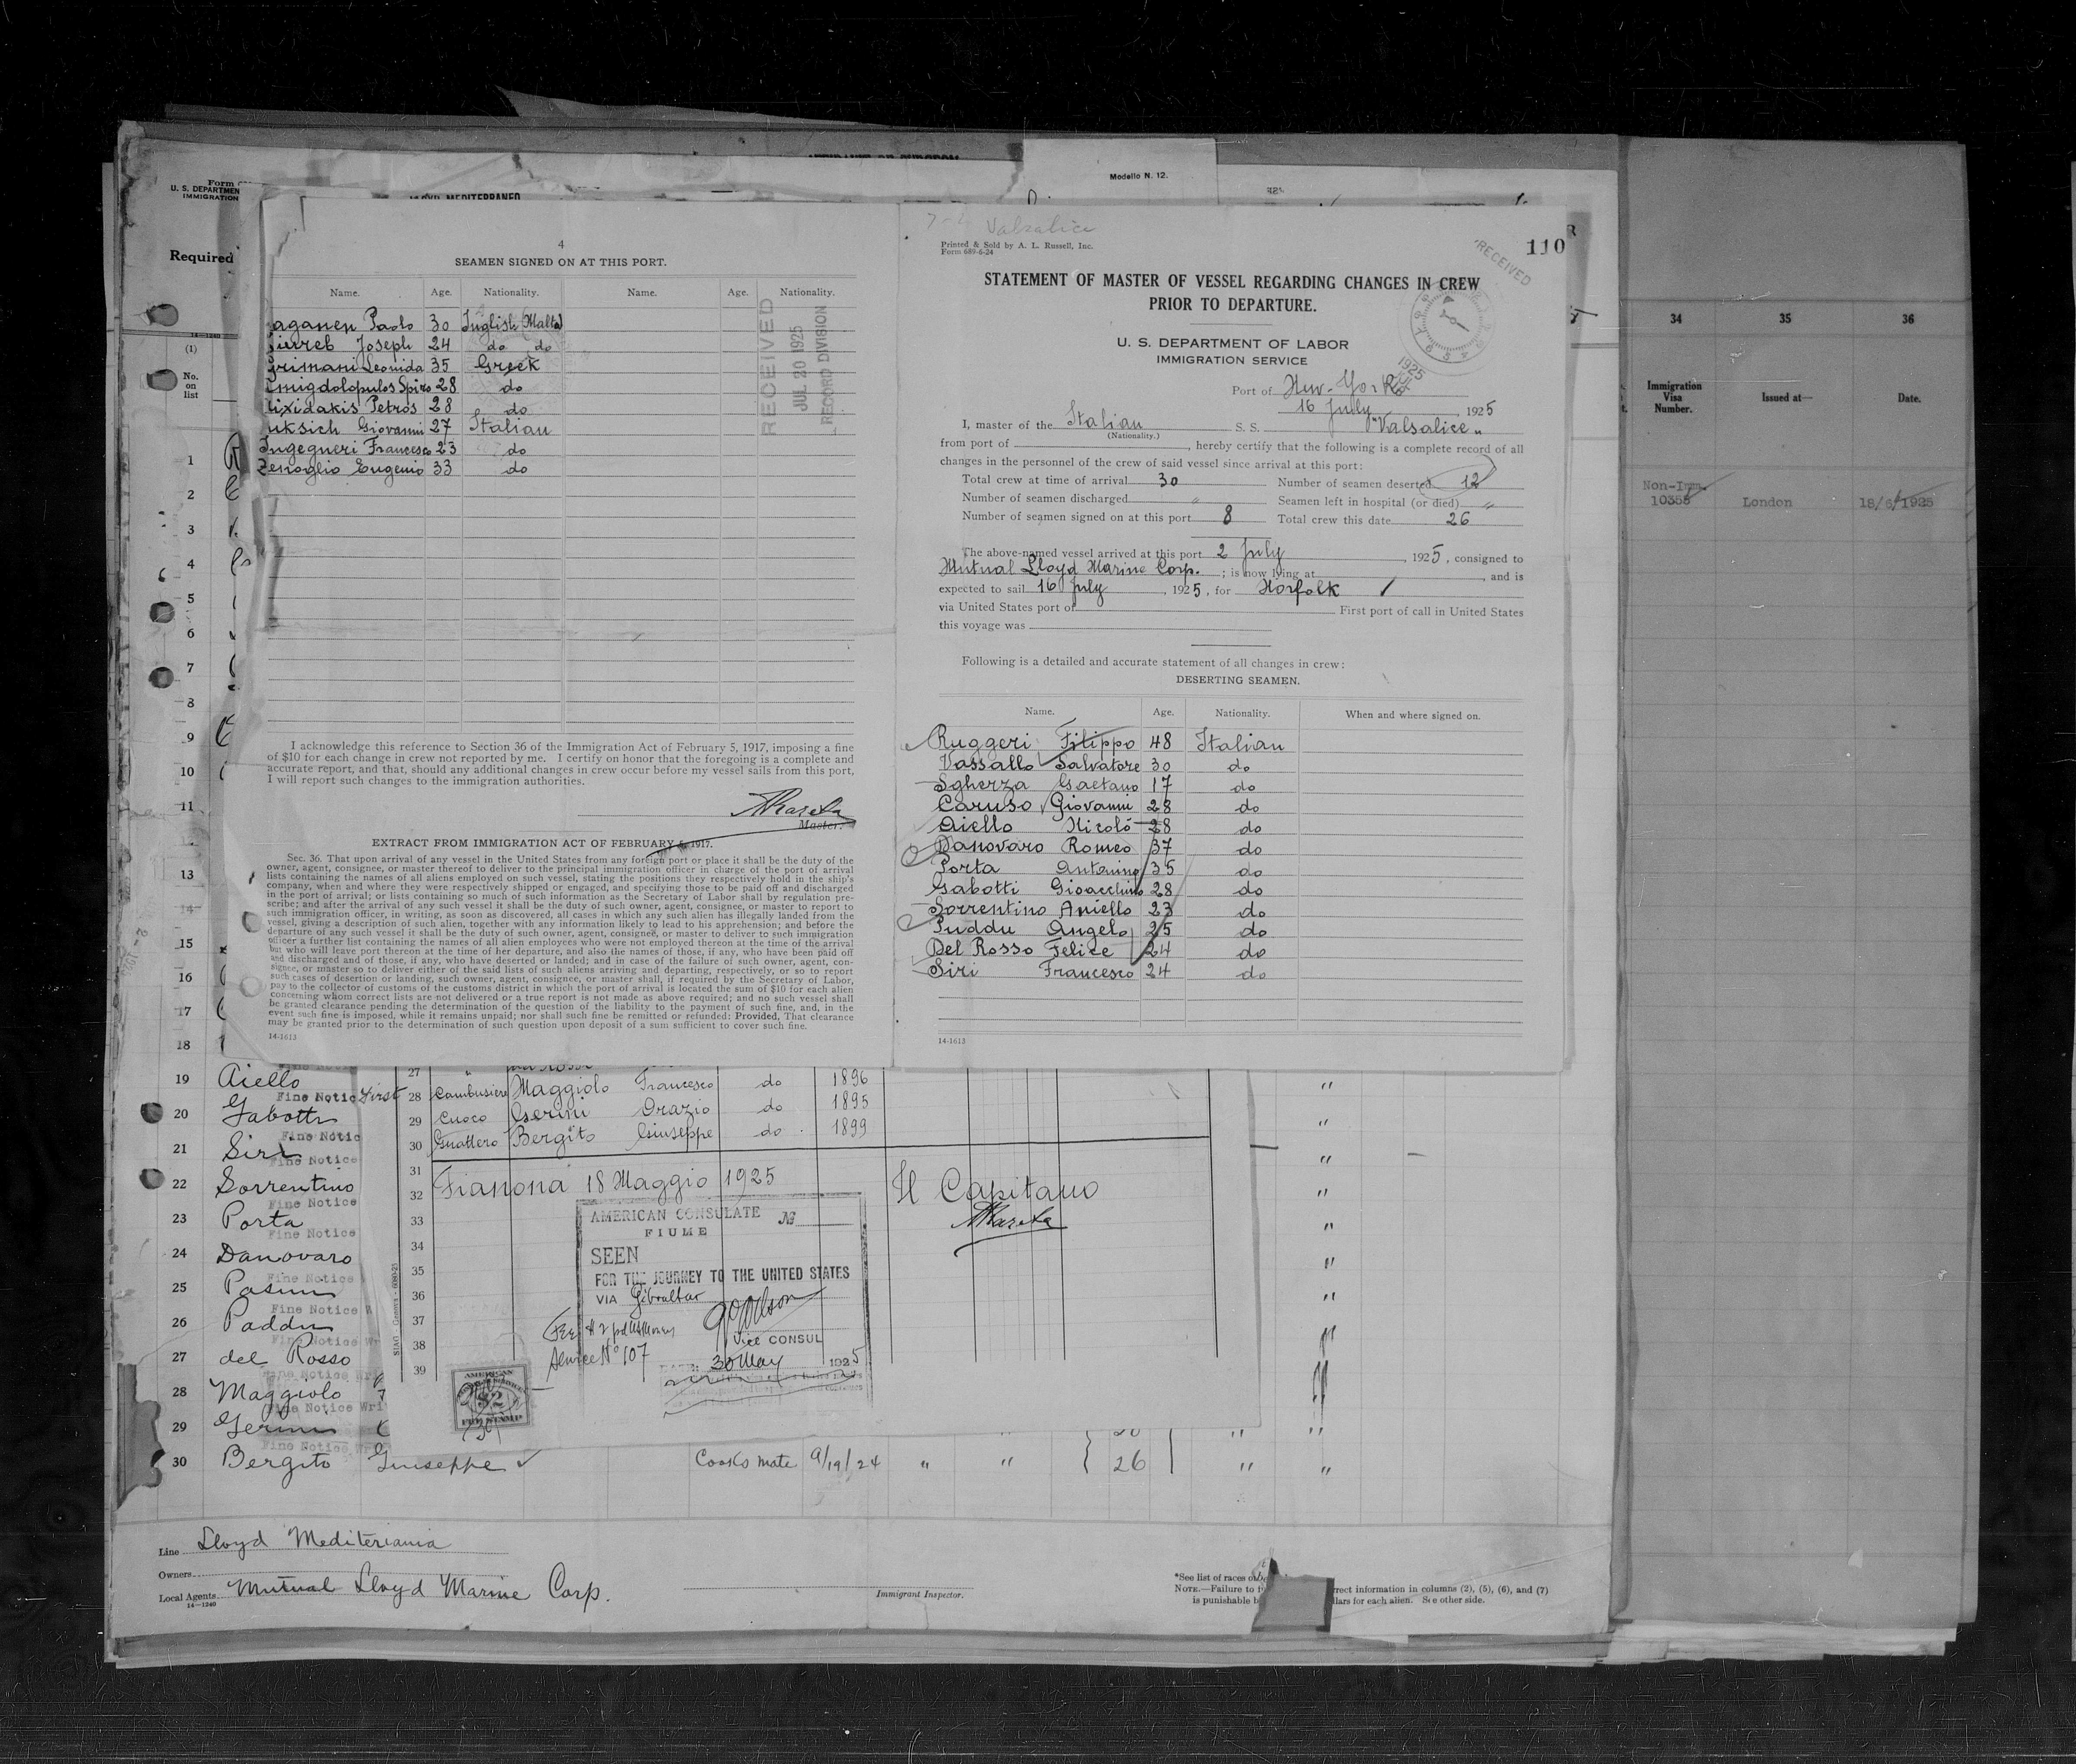 Modello N. 12.
U. S. DEPARTMEN
IMMIGRATION
Required
14—1240
(1)
No.
on
list
1
2
3
4
5
6
7
8
9
10
11
13
14
15
16
17
18
4
SEAMEN SIGNED ON AT THIS PORT.
Name. Age. Nationality. Name. Age. Nationality.
aganen Paolo 30 Inglish (Malta)
Joseph 24 do do
Grimani Leonida 35 Greek
migdolopulos Spiro 28 do
ixidakis Petros 28 do
uksich Giovanni 27 Italian
Ingegneri Francesco 23 do
Zenoglio Eugenio 33 do
RECEIVED
JUL 20 1925
RECORD DIVISION
I acknowledge this reference to Section 36 of the Immigration Act of February 5, 1917, imposing a fine
of $10 for each change in crew not reported by me. I certify on honor that the foregoing is a complete and
accurate report, and that, should any additional changes in crew occur before my vessel sails from this port,
I will report such changes to the immigration authorities.
Master.
EXTRACT FROM IMMIGRATION ACT OF FEBRUARY 5, 1917.
Sec. 36. That upon arrival of any vessel in the United States from any foreign port or place it shall be the duty of the
owner, agent, consignee, or master thereof to deliver to the principal immigration officer in charge of the port of arrival
lists containing the names of all aliens employed on such vessel, stating the positions they respectively hold in the ship's
company, when and where they were respectively shipped or engaged, and specifying those to be paid off and discharged
in the port of arrival; or lists containing so much of such information as the Secretary of Labor shall by regulation pre-
scribe; and after the arrival of any such vessel it shall be the duty of such owner, agent, consignee, or master to report to
such immigration officer, in writing, as soon as discovered, all cases in which any such alien has illegally landed from the
vessel, giving a description of such alien, together with any information likely to lead to his apprehension; and before the
departure of any such vessel it shall be the duty of such owner, agent, consignee, or master to deliver to such immigration
officer a further list containing the names of all alien employees who were not employed thereon at the time of the arrival
but who will leave port thereon at the time of her departure, and also the names of those, if any, who have been paid off
and discharged and of those, if any, who have deserted or landed; and in case of the failure of such owner, agent, con-
signee, or master so to deliver either of the said lists of such aliens arriving and departing, respectively, or so to report
such cases of desertion or landing, such owner, agent, consignee, or master shall, if required by the Secretary of Labor,
pay to the collector of customs of the customs district in which the port of arrival is located the sum of $10 for each alien
concerning whom correct lists are not delivered or a true report is not made as above required; and no such vessel shall
be granted clearance pending the determination of the question of the liability to the payment of such fine, and, in the
event such fine is imposed, while it remains unpaid; nor shall such fine be remitted or refunded: Provided, That clearance
may be granted prior to the determination of such question upon deposit of a sum sufficient to cover such fine.
14-1613
Valsalice
Printed & Sold by A. L. Russell, Inc.
Form 689-6-24
RECEIVED
110
STATEMENT OF MASTER OF VESSEL REGARDING CHANGES IN CREW
PRIOR TO DEPARTURE.
U. S. DEPARTMENT OF LABOR
IMMIGRATION SERVICE
Port of New-York
16 July, 1925
I, master of the Italian S. S. "Valsalice"
(Nationality.)
from port of , hereby certify that the following is a complete record of all
changes in the personnel of the crew of said vessel since arrival at this port:
Total crew at time of arrival 30 Number of seamen deserted 12
Number of seamen discharged " Seamen left in hospital (or died) "
Number of seamen signed on at this port 8 Total crew this date 26
The above-named vessel arrived at this port 2 July, 1925, consigned to
Mutual Lloyd Marine Corp. ; is now lying at , and is
expected to sail 16 July, 1925, for Norfolk
via United States port of First port of call in United States
this voyage was
Following is a detailed and accurate statement of all changes in crew:
DESERTING SEAMEN.
Name. Age. Nationality. When and where signed on.
Ruggeri Filippo 48 Italian
Vassallo Salvatore 30 do
Sgherza Gaetano 17 do
Caruso Giovanni 28 do
Aiello Nicolò 28 do
Danovaro Romeo 37 do
Porta Antonino 35 do
Gabotti Gioacchino 28 do
Sorrentino Aniello 23 do
Puddu Angelo 25 do
Del Rosso Felice 24 do
Siri Francesco 24 do
14-1613
34 35 36
Immigration
Visa
Number. Issued at— Date.
Non-Imm.
10358 London 18/6/1925
19 Aiello
Fine Notic First
20 Gabotti
Fine Notic
21 Siri
Fine Notice
22 Sorrentino
Fine Notice
23 Porta
Fine Notice
24 Danovaro
Fine Notice
25 Pasini
Fine Notice W
26 Paddu
Fine Notice Wr
27 del Rosso
28 Maggiolo
Fine Notice Wri
29 Gerini
Fine Notice Wr
30 Bergito Giuseppe Cooks mate 9/19/24 " " 26 " "
27
28 Cambusiere Maggiolo Francesco do 1896
29 Cuoco Gerini Orazio do 1895
30 Guattero Bergito Giuseppe do 1899
31
32 Fianona 18 Maggio 1925 Il Capitano
33
34
35
36
37
38
39
AMERICAN CONSULATE No
FIUME
SEEN
FOR THE JOURNEY TO THE UNITED STATES
VIA Gibraltar
VICE CONSUL
Service No 107
30 May 1925
AMERICAN
$2
FEE STAMP
Line Lloyd Mediterania
Owners
Local Agents Mutual Lloyd Marine Corp.
14—1240
Immigrant Inspector.
*See list of races o
NOTE.—Failure to f rrect information in columns (2), (5), (6), and (7)
is punishable b llars for each alien. See other side.